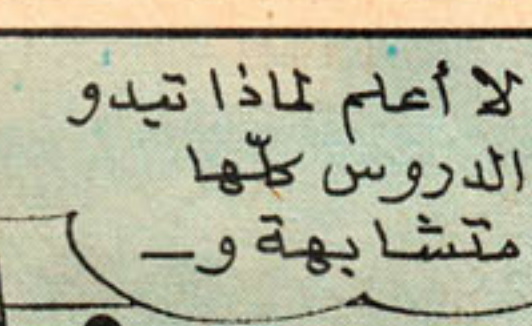 لا أعلم لماذا تبدو
الدروس كلّها
متشابهة و —